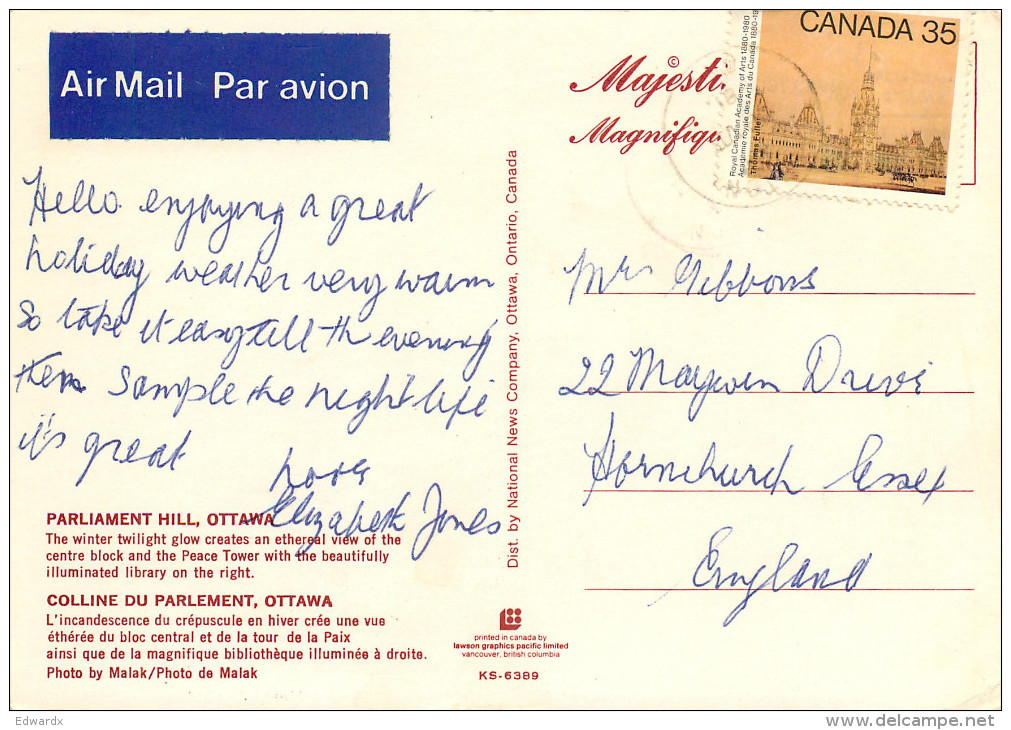 Air Mail Par avion
Hello enjoying a great
holiday weather very warm
So take it easy till th evening
then Sample the night life
it's great
Love
Elizabeth Jones
PARLIAMENT HILL, OTTAWA
The winter twilight glow creates an ethereal view of the
centre block and the Peace Tower with the beautifully
illuminated library on the right.
COLLINE DU PARLEMENT, OTTAWA
L'incandescence du crépuscule en hiver crée une vue
éthérée du bloc central et de la tour de la Paix
ainsi que de la magnifique bibliothèque illuminée à droite.
Photo by Malak/Photo de Malak
Dist. by National News Company, Ottawa, Ontario, Canada
printed in canada by
lawson graphics pacific limited
vancouver, british columbia
KS-6389
©
Majesti
Magnifiqu
CANADA 35
Royal Canadian Academy of Arts 1880-1980
Académie royale des Arts du Canada 1880-19
Thomas Fuller
Mrs Gibbons
22 Maywin Drive
Hornchurch Essex
England
Edwardx
delcampe.net